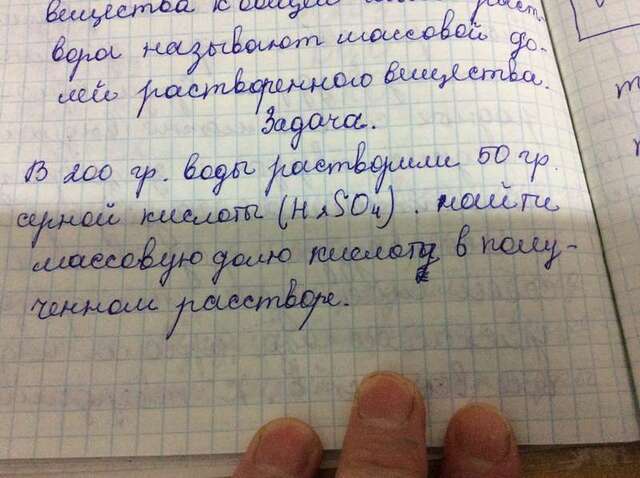 вещества к общей
вора называют массовой до-
лей растворенного вещества.
Задача.
В 200 гр. воды растворили 50 гр.
серной кислоты (H2SO4). найти
массовую долю кислоты в полу-
ченном расстворе.